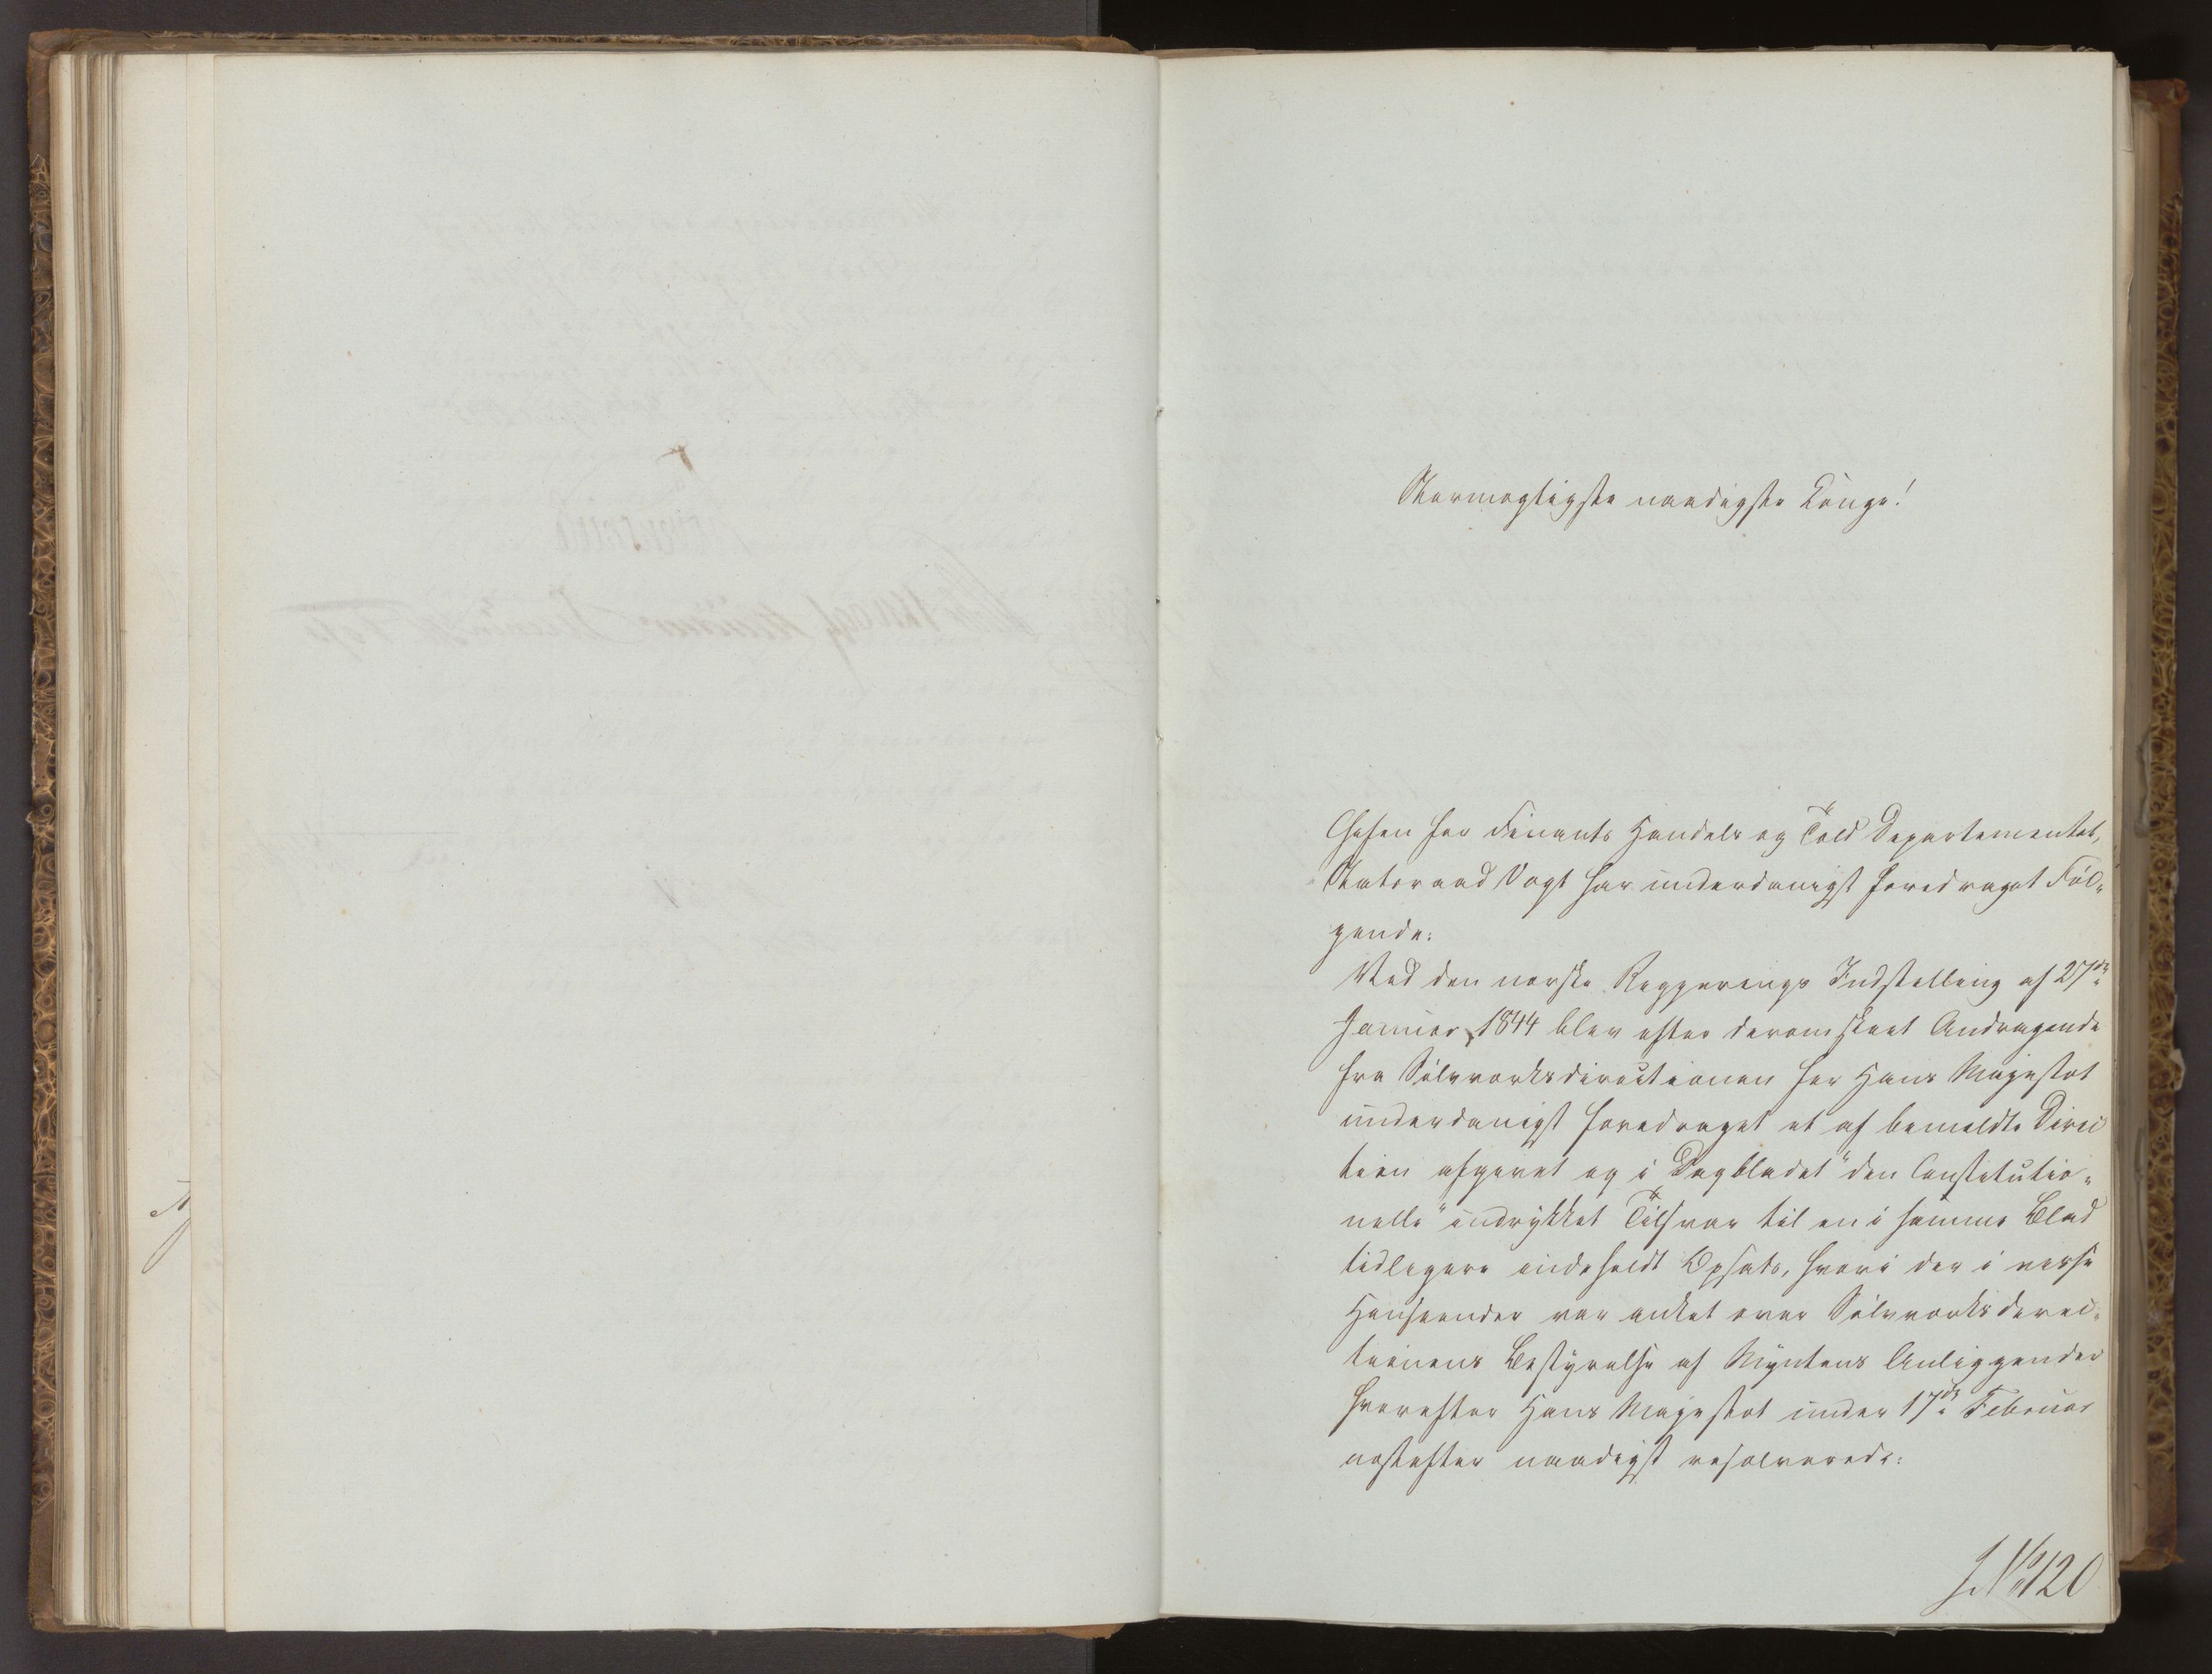 Stormægtigste naadigste Konge!
Chefen for Finants Handels og Told Departementet,
Statsraad Vogt har underdanigst foredraget Føl-
gende:
Ved den norske Regjerings Indstilling af 27de
Januar 1844 blev efter derom skeet Andragende
fra Sølvværksdirectionen for Hans Majestæt
underdanigst foredraget et af bemeldte Direc
tion afgivet og i Dagbladet "den Constitutio-
nelle" indrykket Tilsvar til en i samme Blad
tidligere indeholdt Opsats, hvori der i visse
Henseender var anket over Sølvværksdirec-
tionens Bestyrelse af Myntens Anliggender
hvorefter Hans Majestæt under 17de Februar
næstefter naadigst resolverede:
J.No 120